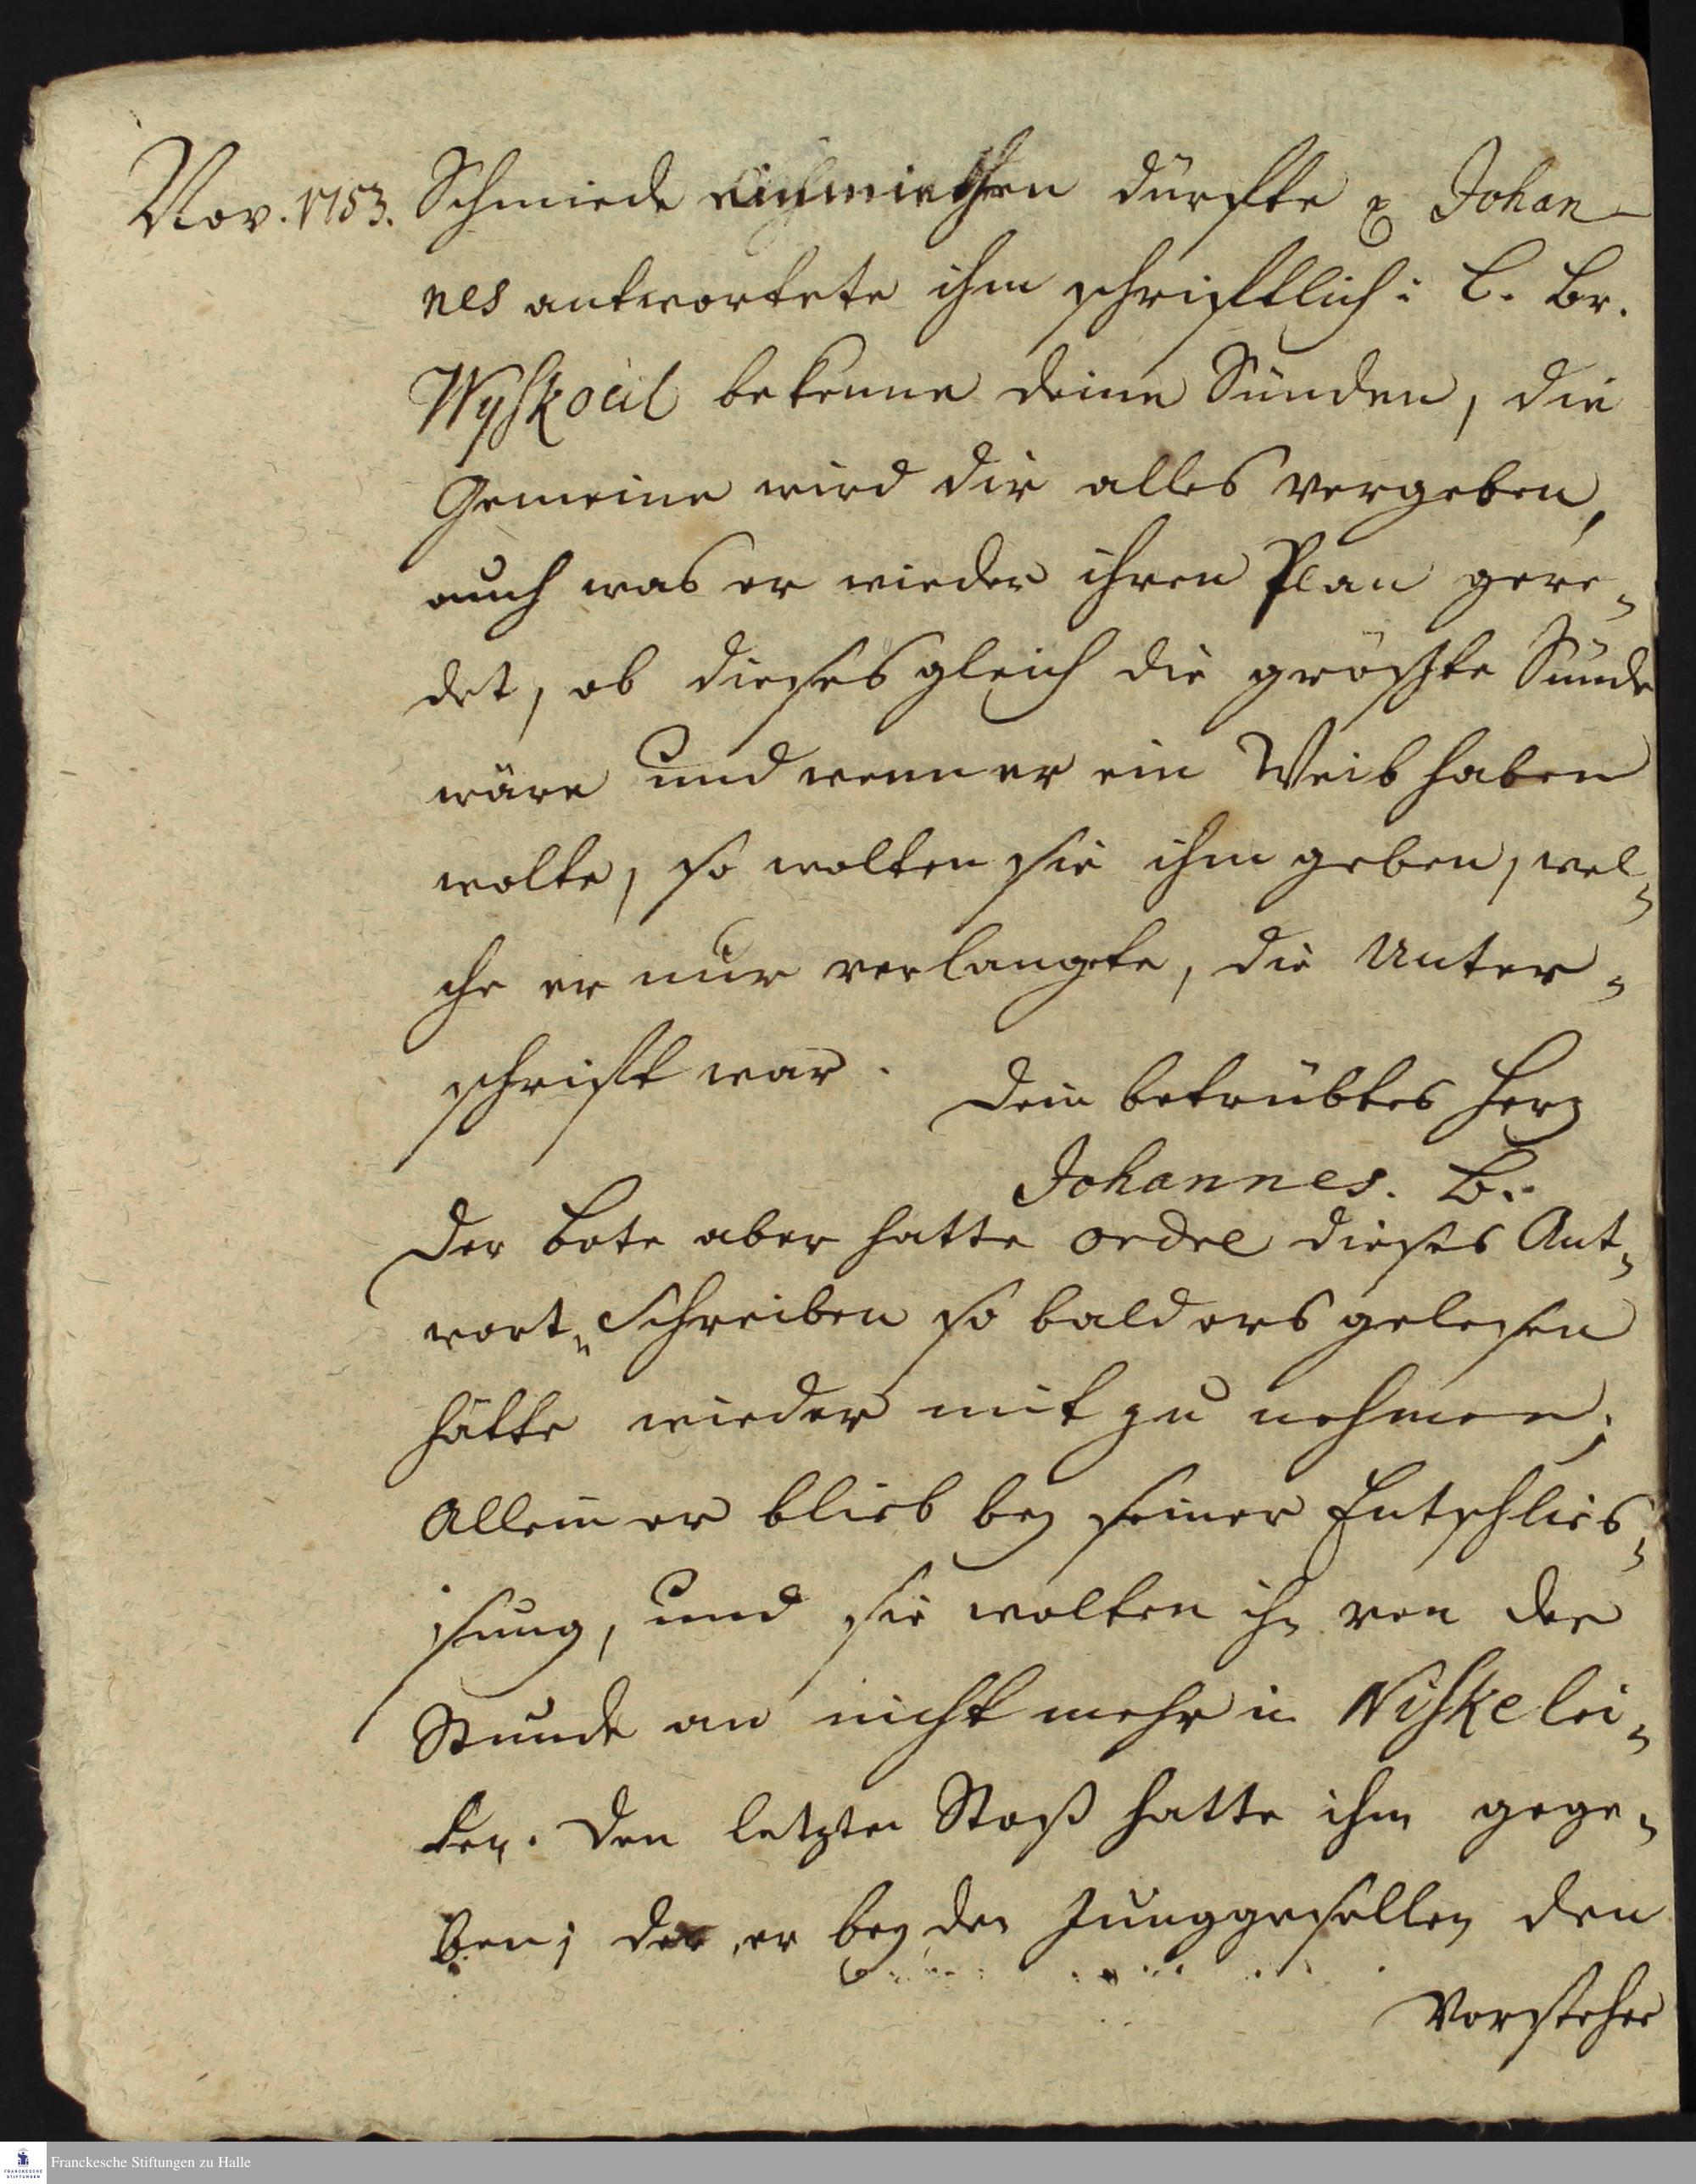 Nov. 1753. Schmiede einmiethen dürfte Johan-
nes antwortete ihm schrifftlich: L. Br.
Wyskocil bekenne deine Sünden, die
Gemeine wird dir alles vergeben,
auch was er wieder ihren Plan gere-
det, ob dieses gleich die gröste Sünde
wäre und wenn er ein Weib haben
wolte, so wolten sie ihm geben, wel-
che er nur verlangete, die Unter-
schrifft war.
Dein betrübtes Herz
Johannes. B.
Der Bote aber hatte ordre dieses Ant-
wort-Schreiben so bald ers gelesen
hätte wieder mit zu nehmen;
Allein er blieb bey seiner Entschlies-
sung, und sie wolten ihn von der
Stunde an nicht mehr in Niske lei-
den. Den letzten Stoß hatte ihm gege-
ben; er bey den Junggesellen den
Vorsteher
Franckesche Stiftungen zu Halle
FRANCKESCHE
STIFTUNGEN